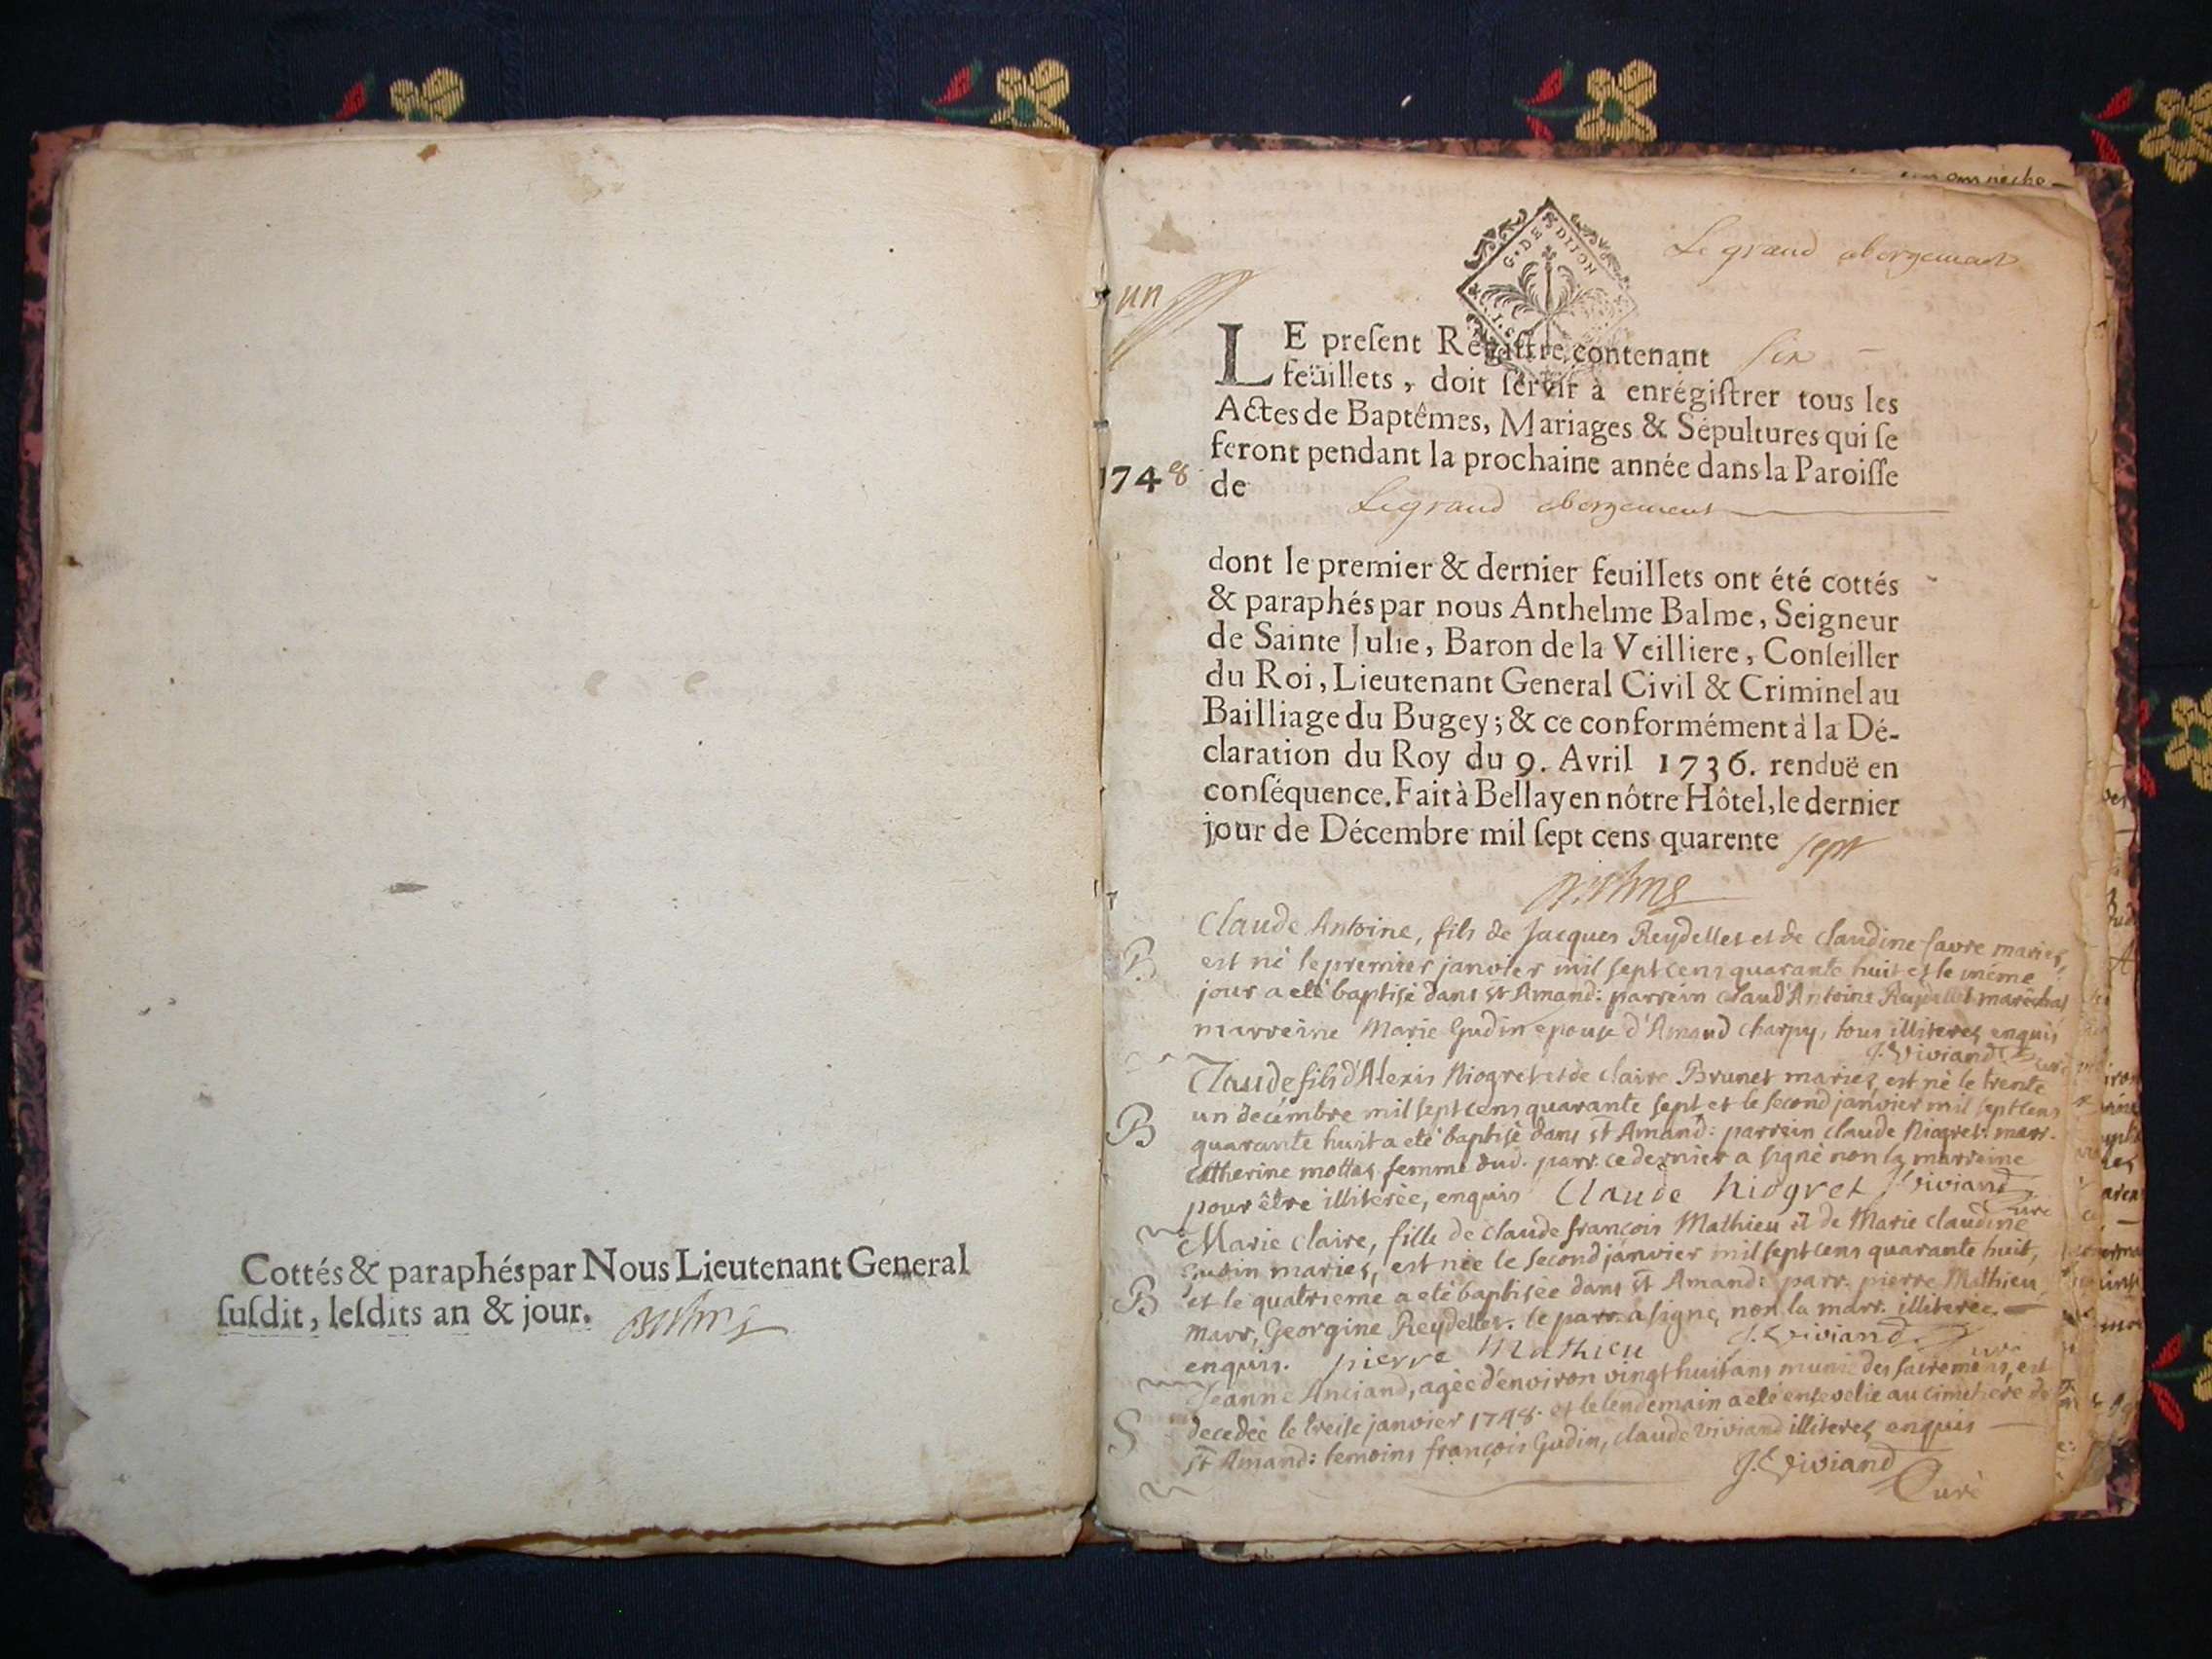 Cottés & paraphés par Nous Lieutenant General
ſuſdit, leſdits an & jour.
Le grand abergement
G. DE DIJON
un
LE preſent Régiſtre contenant six
feüillets, doit ſervir à enrégiſtrer tous les
Actes de Baptêmes, Mariages & Sépultures qui ſe
feront pendant la prochaine année dans la Paroiſſe
1748 de
Le grand abergement
dont le premier & dernier feuillets ont été cottés
& paraphés par nous Anthelme Balme, Seigneur
de Sainte Julie, Baron de la Veilliere, Conſeiller
du Roi, Lieutenant General Civil & Criminel au
Bailliage du Bugey; & ce conformément à la Dé-
claration du Roy du 9. Avril 1736. renduë en
conſéquence. Fait à Bellay en nôtre Hôtel, le dernier
jour de Décembre mil ſept cens quarente sept
Claude Antoine, fils de Jacques Reydellet et de Claudine favre mariez,
B est né le premier janvier mil sept cens quarante huit et le même
jour a eté baptisé dans st Amand: parrein Claud'Antoine Reydellet marêchal
marreine Marie Gudin epouse d'Amand Charpy, tous illiterez enquis
J. Viviand Curé
Claude fils d'Alexis Niogret et de Claire Brunet mariez est né le trente
un decémbre mil sept cens quarante sept et le second janvier mil sept cens
B quarante huit a eté baptisé dans st Amand: parrein Claude Niogret: marr.
Catherine mottaz femme dud. parr. ce dernier a signé non la marreine
pour être illiterée, enquis Claude Niogret J. Viviand Curé
Marie Claire, fille de Claude françois Mathieu et de Marie Claudine
Gudin mariez, est née le second janvier mil sept cens quarante huit,
B et le quatrieme a eté baptisée dans st Amand: parr. pierre Mathieu
marr, Georgine Reydellet. le parr. a signé, non la marr. illiterée.
enquis. pierre Mathieu J. Viviand Curé
Jeanne Anciand, agée d'environ vingt huit ans munie des sacremens, est
decedée le treise janvier 1748. et le lendemain a eté ensevelie au cimetiere de
S st Amand: temoins françois Gudin, Claude Viviand illiterez enquis
J. Viviand
Curé